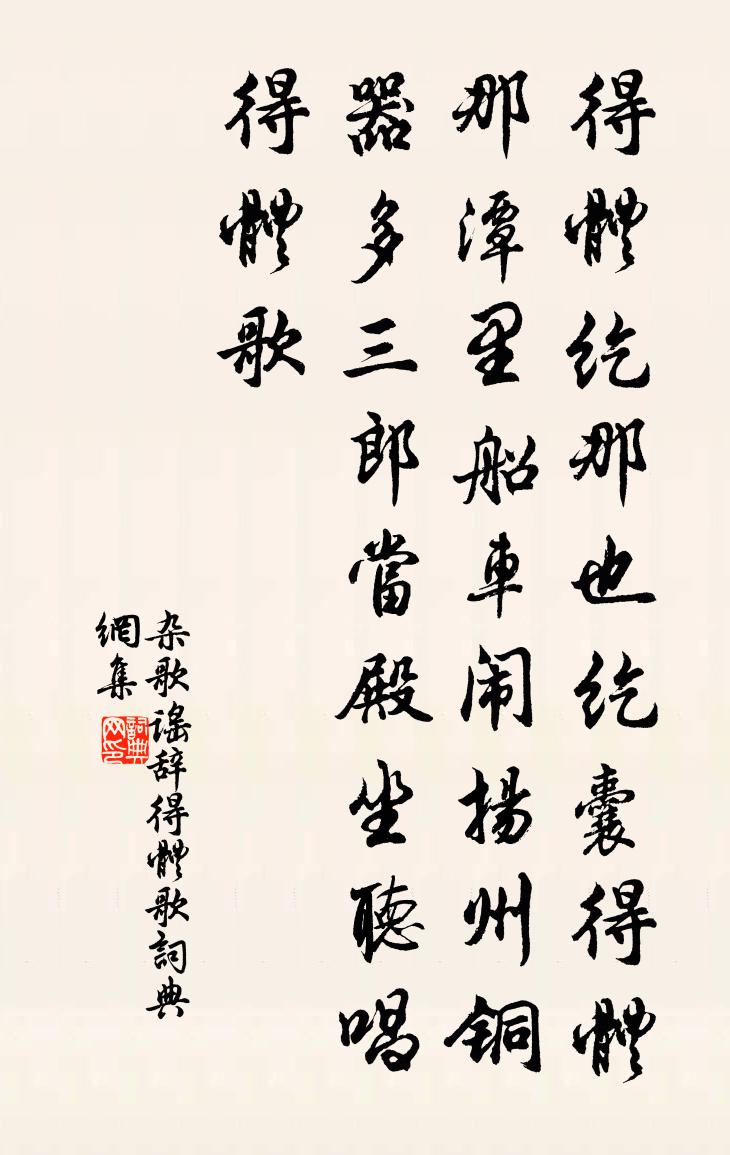 得體紇那也紇囊得體
那潭里船車闹揚州銅
器多三郎當殿坐聽唱
得體歌
杂歌谣辞得體歌詞典
網集
詞典
网印